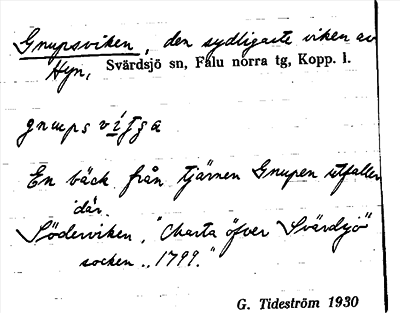 Gnupsviken, den sydligaste viken av
Hyn, Svärdsjö sn, Falu norra tg, Kopp. l.
gnups
En bäck från tjärnen Gnupen utfaller
där.
Söderviken, "Charta öfver Svärdsjö
socken .. 1799."
G. Tideström 1930